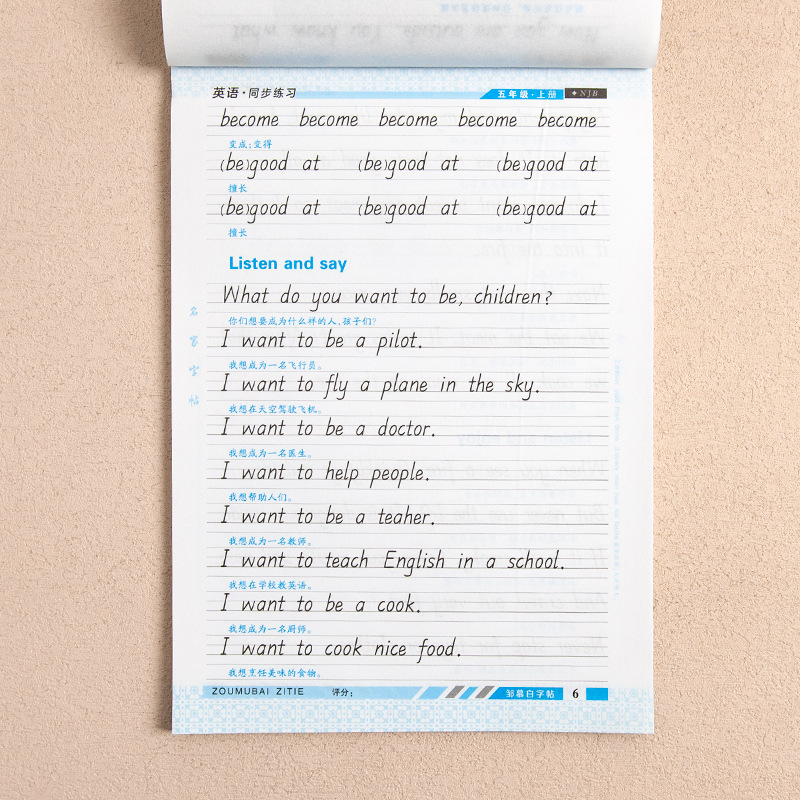 英语·同步练习 五年级·上册 NJB
become become become become become
变成;变得
(be)good at (be)good at (be)good at
擅长
(be)good at (be)good at (be)good at
擅长
Listen and say
What do you want to be, children?
你们想要成为什么样的人,孩子们?
I want to be a pilot.
我想成为一名飞行员。
I want to fly a plane in the sky.
我想在天空驾驶飞机。
I want to be a doctor.
我想成为一名医生。
I want to help people.
我想帮助人们。
I want to be a teaher.
我想成为一名教师。
I want to teach English in a school.
我想在学校教英语。
I want to be a cook.
我想成为一名厨师。
I want to cook nice food.
我想烹饪美味的食物。
ZOUMUBAI ZITIE 评分: 邹慕白字帖 6